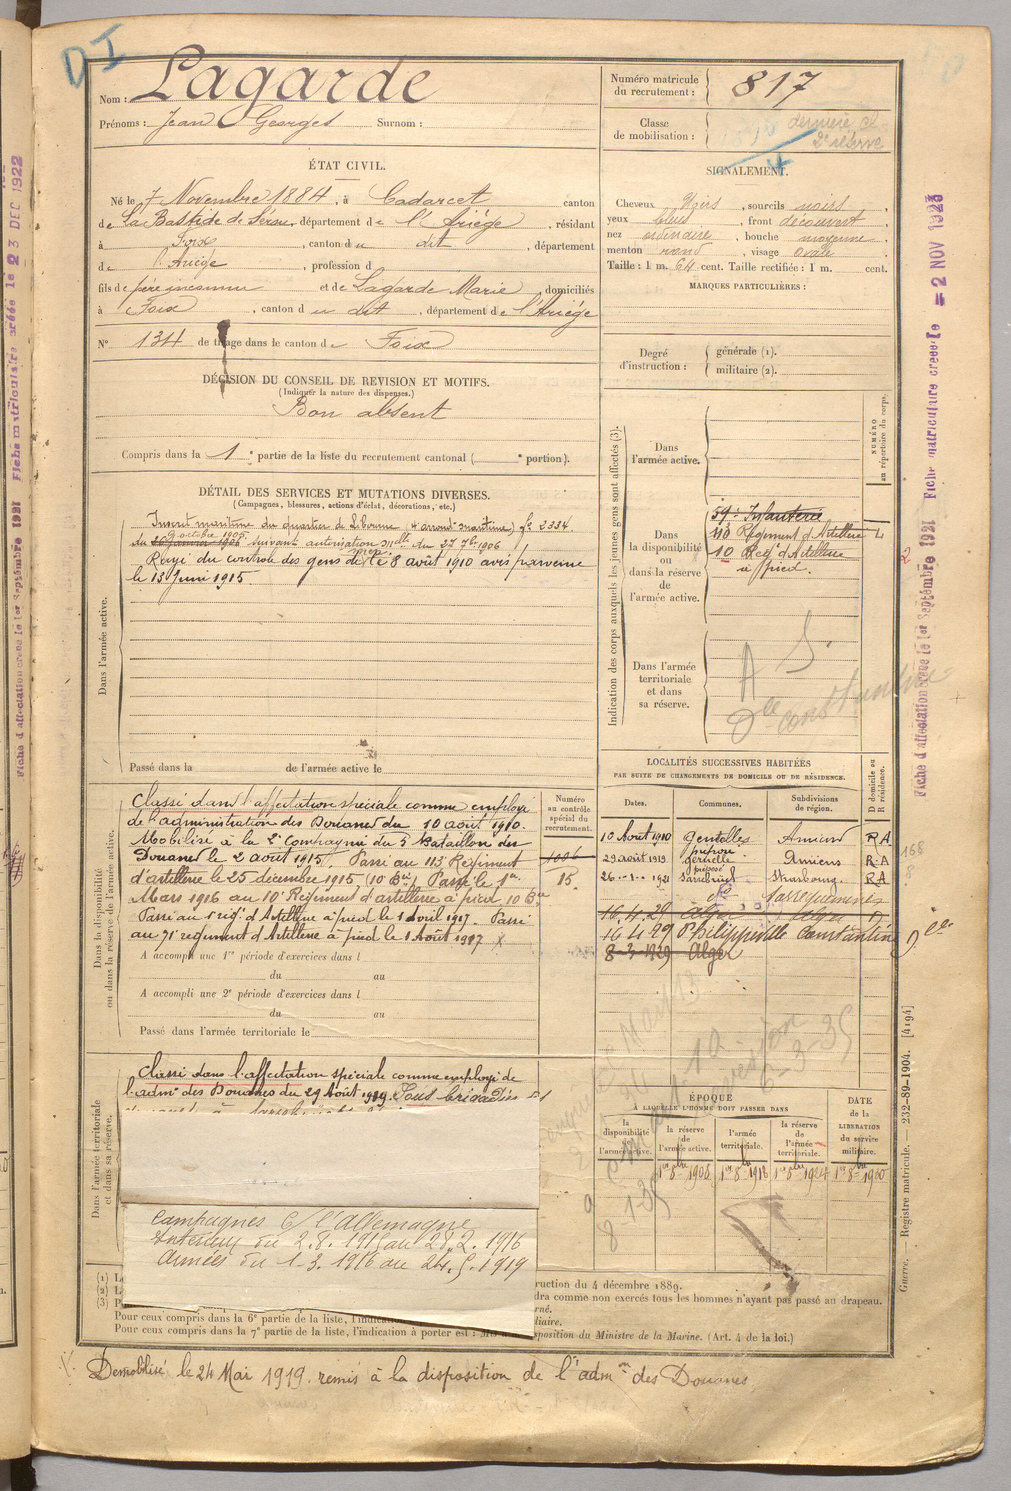 D I
Nom : Lagarde
Prénoms : Jean Georges Surnom :
Numéro matricule du recrutement : 817
Classe de mobilisation : dernière cl. 2e réserve
ÉTAT CIVIL.
Né le 7 Novembre 1884, à Cadarcet canton
de La Bastide de Sérou, département de l'Ariège, résidant
à Foix, canton du dit, département
de l'Ariège, profession d
fils de père inconnu et de Lagarde Marie, domiciliés
à Foix, canton du dit, département de l'Ariège
N° 134 de tirage dans le canton de Foix
SIGNALEMENT.
Cheveux Noirs, sourcils noirs,
yeux bleus, front découvert
nez ordinaire, bouche moyenne,
menton rond, visage ovale
Taille : 1 m. 64 cent. Taille rectifiée : 1 m. cent.
MARQUES PARTICULIÈRES :
Degré d'instruction : générale (1).
militaire (2).
DÉCISION DU CONSEIL DE REVISION ET MOTIFS.
(Indiquer la nature des dispenses.)
Bon absent
Compris dans la 1e partie de la liste du recrutement cantonal ( e portion).
DÉTAIL DES SERVICES ET MUTATIONS DIVERSES.
(Campagnes, blessures, actions d'éclat, décorations, etc.)
Inscrit maritime du quartier de Libourne (4 arrond. maritime) 2334
9 octobre 1905
du suivant autorisation Mlle du 27 7bre 1906
Rayé du contrôle des gens de mer le 8 août 1910 avis parvenu
le 13 Juin 1915
Dans l'armée active.
Passé dans la de l'armée active le
Indication des corps auxquels les jeunes gens sont affectés (3).
NUMÉRO au répertoire du corps.
Dans l'armée active.
Dans la disponibilité ou dans la réserve de l'armée active.
59e Infanterie
113 Régiment d'Artillerie
10 Reg. d'Artillerie
à pied.
Dans l'armée territoriale et dans sa réserve.
Constantine
LOCALITÉS SUCCESSIVES HABITÉES
PAR SUITE DE CHANGEMENTS DE DOMICILE OU DE RÉSIDENCE.
Dates. Communes. Subdivisions de région. D domicile ou R résidence.
10 Août 1910 Gentelles Amiens RA
29 août 1919 préposé Amiens RA
26 1921 Strasbourg RA
Sarreguemines
16.4.29 Alger Alger D
16 4 29 Philippeville Constantine
8-3-1929 Alger
Dans la disponibilité ou dans la réserve de l'armée active.
Classé dans l'affectation spéciale comme employé
de l'administration des Douanes du 10 août 1910.
Mobilisé à la 2e Compagnie du 5 Bataillon des
Douanes le 2 août 1915. Passé au 113 Régiment
d'artillerie le 25 décembre 1915 (10 Bie) Passé le 1er
Mars 1916 au 10 Régiment d'artillerie à pied 10 Bie
Passé au 1 rég. d'Artillerie à pied le 1 avril 1917. Passé
au 71e régiment d'Artillerie à pied le 1 Août 1917
Numéro au contrôle spécial du recrutement.
1006
15
A accompli une 1re période d'exercices dans l
du au
A accompli une 2e période d'exercices dans l
du au
Passé dans l'armée territoriale le
Dans l'armée territoriale et dans sa réserve.
Classé dans l'affectation spéciale comme employé de
l'adm. des Douanes du 29 Août 1919. Sous brigadier
Campagnes c/ l'Allemagne
Intérieur du 2.8.1915 au 28.2.1916
Armées du 1-3.1916 au 24.5.1919
ÉPOQUE
À LAQUELLE L'HOMME DOIT PASSER DANS
la disponibilité de l'armée active.
la réserve de l'armée active.
l'armée territoriale.
la réserve de l'armée territoriale.
DATE de la LIBÉRATION du service militaire.
1er 8bre 1908 1er 8bre 1918 1er 8bre 1924 1er 8bre 1930
(1)
(2)
(3)
ruction du 4 décembre 1889.
dra comme non exercés tous les hommes n'ayant pas passé au drapeau.
Pour ceux compris dans la 6e partie de la liste, l'indica
Pour ceux compris dans la 7e partie de la liste, l'indication à porter est : sposition du Ministre de la Marine. (Art. 4 de la loi.)
Démobilisé le 24 Mai 1919. remis à la disposition de l'adm. des Douanes
Guerre. — Registre matricule. — 232-89-1904. [4194]
Fiche d'affectation créée le 1er Septembre 1921 Fiche matriculaire créée le = 2 NOV 1923
Fiche d'affectation créée le 1er Septembre 1921 Fiche matriculaire créée le 23 DEC 1922